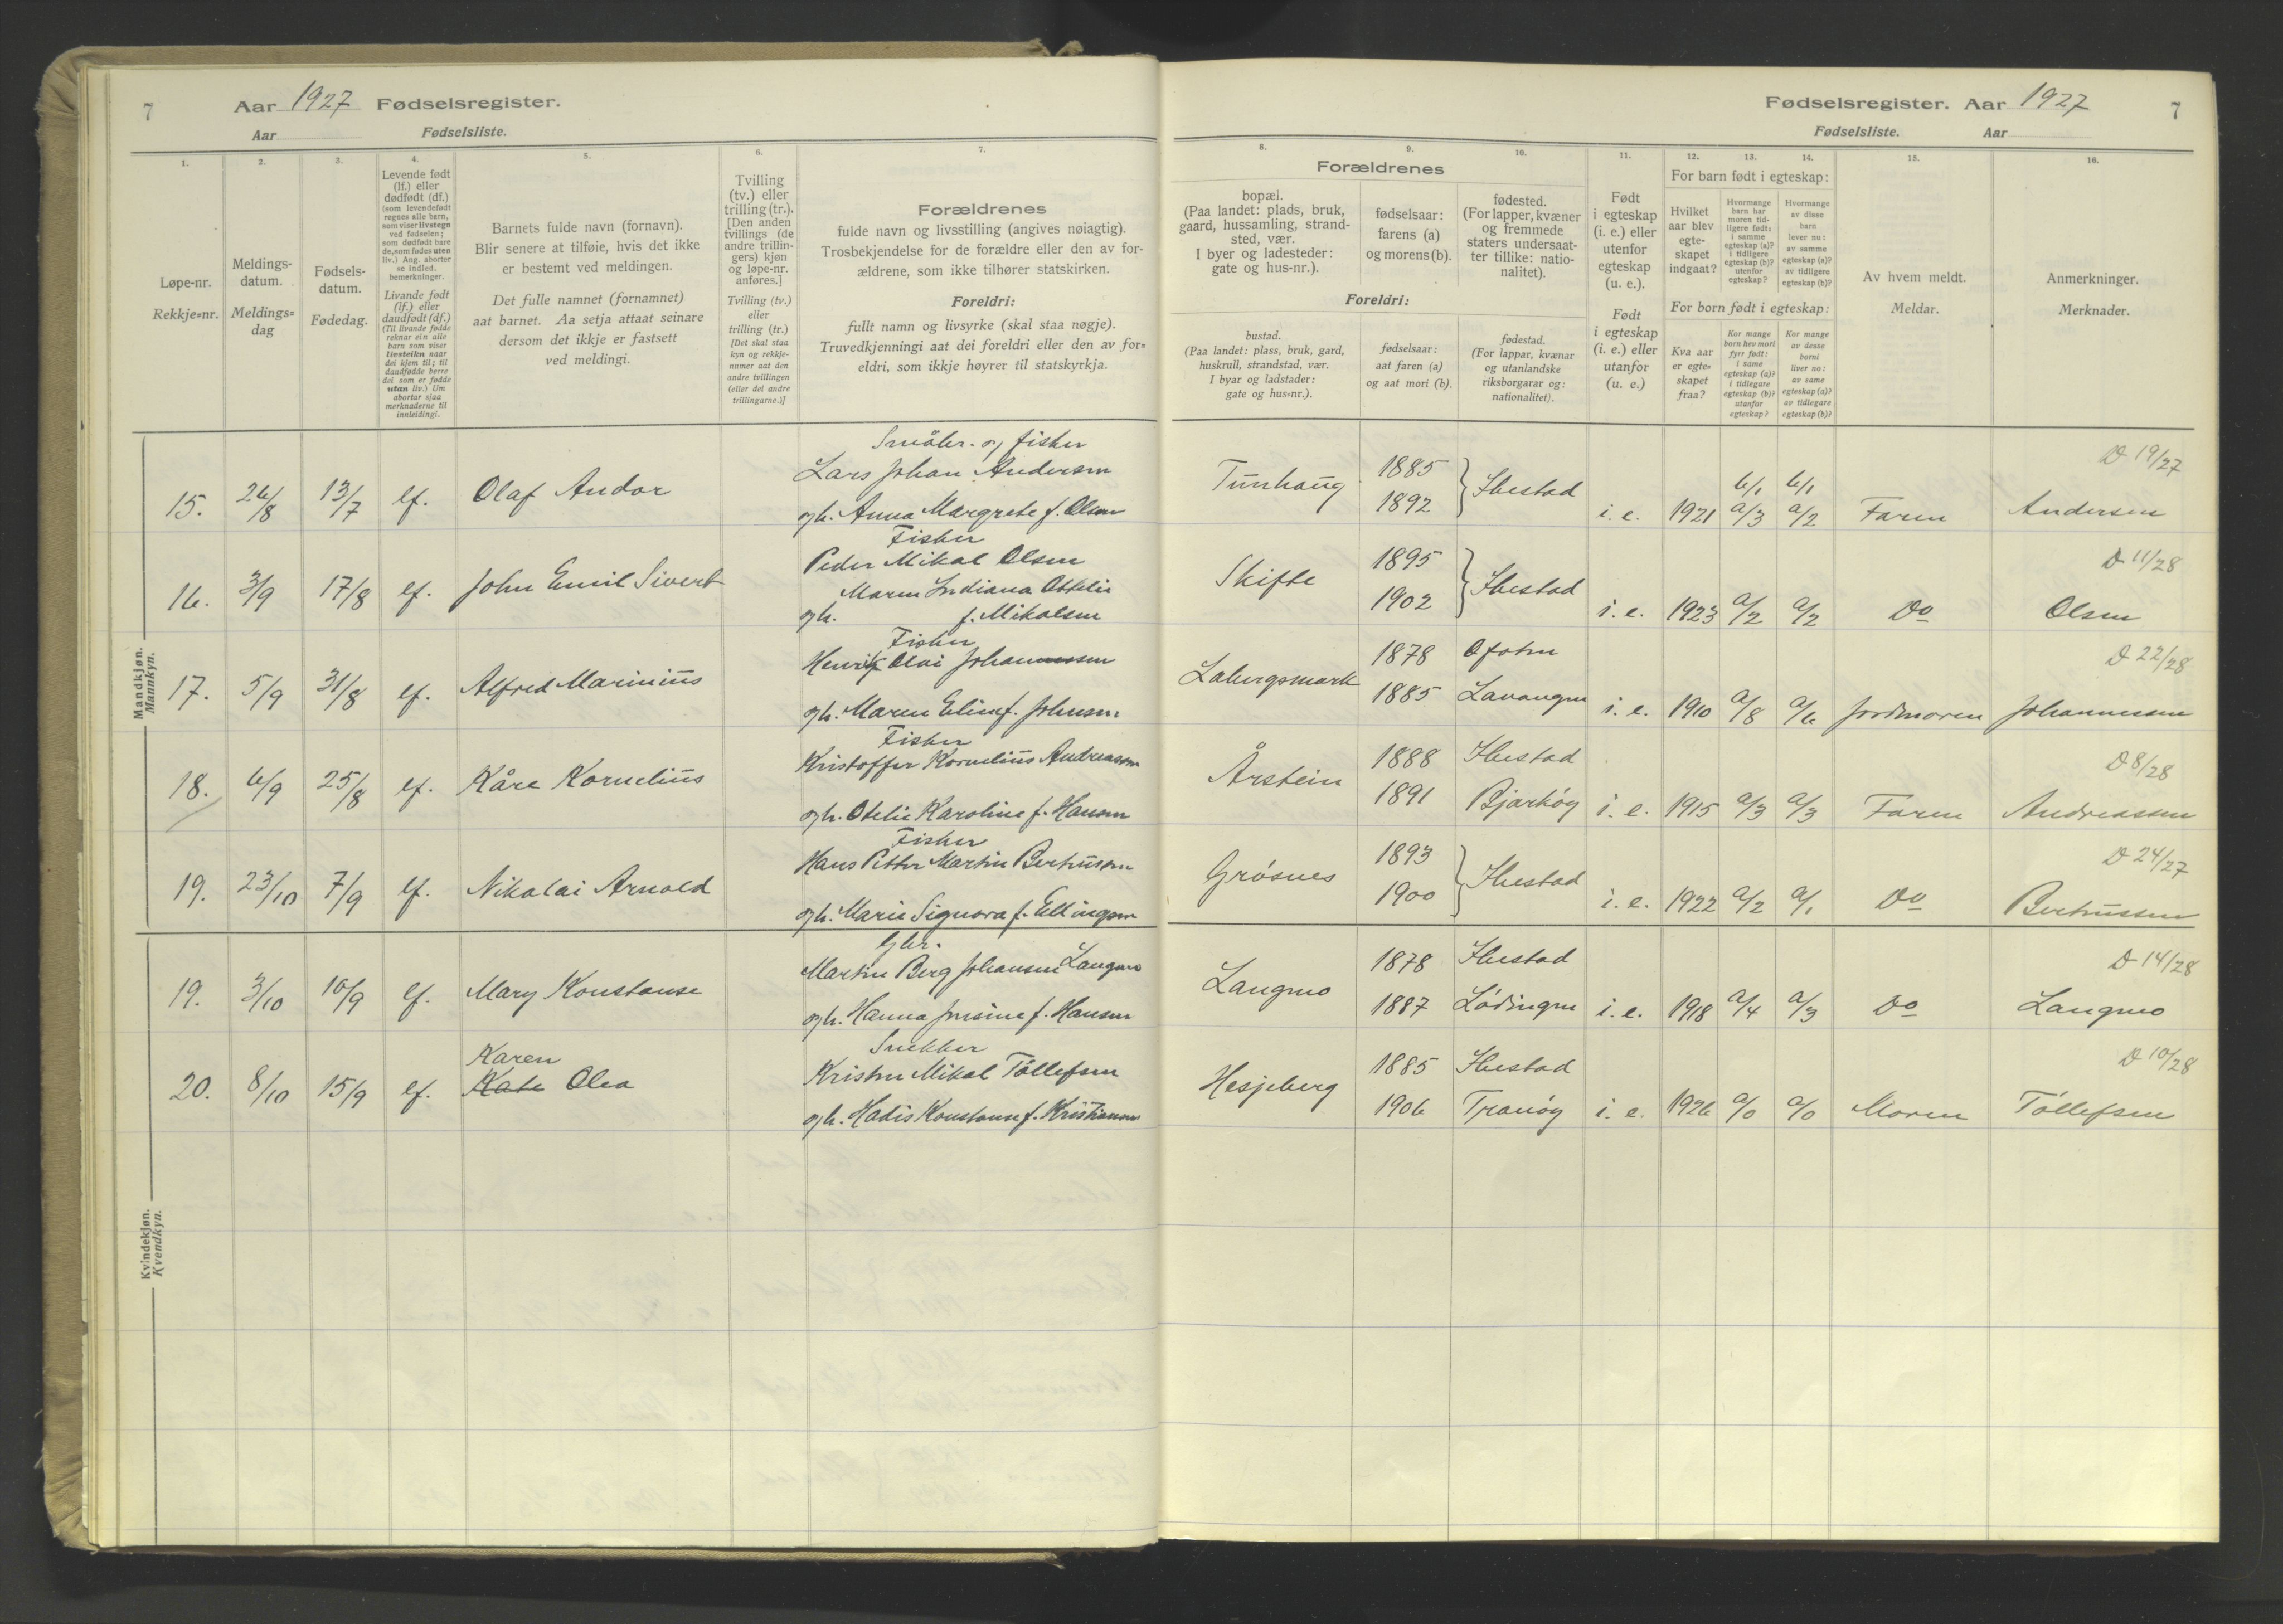 7
Aar 1927 Fødselsregister.
Aar
Fødselsliste.
1.
Løpe-nr.
Rekkje=nr.
2.
Meldings-
datum.
Meldings=
dag
3.
Fødsels-
datum.
Fødedag.
4.
Levende født
(lf.) eller
dødfødt (df.)
(som levendefødt
regnes alle barn,
som viser livstegn
ved fødselen;
som dødfødt bare
de, som fødes uten
liv.) Ang. aborter
se indled.
bemerkninger.
Livande født
(lf.) eller
daudfødt (df.)
(Til livande fødde
reknar ein alle
barn som viser
livsteikn naar
dei kjem til; til
daudfødde berre
dei som er fødde
utan liv.) Um
abortar sjaa
merknaderne til
innleidingi.
5.
Barnets fulde navn (fornavn).
Blir senere at tilføie, hvis det ikke
er bestemt ved meldingen.
Det fulle namnet (fornamnet)
aat barnet. Aa setja attaat seinare
dersom det ikkje er fastsett
ved meldingi.
6.
Tvilling
(tv.) eller
trilling (tr.).
[Den anden
tvillings (de
andre trillin-
gers) kjøn
og løpe-nr.
anføres.]
Tvilling (tv.)
eller
trilling (tr.)
[Det skal staa
kyn og rekkje-
numer aat den
andre tvillingen
(eller dei andre
trillingarne.)]
7.
Forældrenes
fulde navn og livsstilling (angives nøiagtig).
Trosbekjendelse for de forældre eller den av for-
ældrene, som ikke tilhører statskirken.
Foreldri:
fullt namn og livsyrke (skal staa nøgje).
Truvedkjenningi aat dei foreldri eller den av for=
eldri, som ikkje høyrer til statskyrkja.
Mandkjøn.
Mannkyn.
15. 26/8 13/7 lf. Olaf Andor
Småbr. og fisker
Lars Johan Andersen
og h. Anna Margrete f. Olsen
16. 3/9 17/8 lf. John Emil Sivert
Fisker
Peder Mikal Olsen
Maren Indiana Ottelie
og h. f. Mikalsen
17. 5/9 31/8 lf. Alfred Marinius
Fisker
Henrik Olai Johannessen
og h. Maren Eline f. Johnsen
18. 6/9 25/8 lf. Kåre Kornelius
Fisker
Kristoffer Kornelius Andreassen
og h. Otelie Karoline f. Hansen
19. 23/10 7/9 lf. Nikolai Arnold
Fisker
Hans Petter Martin Bertheussen
og h. Marie Signora f. Ellingsen
Kvindekjøn.
Kvendkyn.
19. 3/10 10/9 lf. Mary Konstanse
Gbr.
Martin Berg Johansen Langmo
og h. Hanna Jensine f. Hansen
Karen
20. 8/10 15/9 lf. Kate Olea
Snekker
Kristen Mikal Tollefsen
og h. Hadis Konstanse f. Kristiansen
Fødselsregister. Aar 1927
7
Fødselsliste.
Aar
8.
Forældrenes
bopæl.
(Paa landet: plads, bruk,
gaard, hussamling, strand-
sted, vær.
I byer og ladesteder:
gate og hus-nr.).
Foreldri:
bustad.
(Paa landet: plass, bruk, gard,
huskrull, strandstad, vær.
I byar og ladstader:
gate og hus=nr.).
9.
fødselsaar:
farens (a)
og morens (b).
fødselsaar:
aat faren (a)
og aat mori (b).
10.
fødested.
(For lapper, kvæner
og fremmede
staters undersaat-
ter tillike: natio-
nalitet).
fødestad.
(For lappar, kvænar
og utanlandske
riksborgarar og:
nationalitet).
11.
Født
i egteskap
(i. e.) eller
utenfor
egteskap
(u. e.).
Født
i egteskap
(i. e.) eller
utanfor
(u. e.)
12.
For barn født i egteskap:
Hvilket
aar blev
egte-
skapet
indgaat?
For born født i egteskap:
Kva aar
er egte=
skapet
fraa?
13.
Hvormange
barn har
moren tid-
ligere født:
i samme
egteskap (a)?
i tidligere
egteskap (b)?
utenfor
egteskap?
Kor mange
born hev mori
fyrr født:
i same
egteskap (a)?
i tidlegare
egteskap (b)?
utanfor
egteskap?
14.
Hvormange
av disse
barn
lever nu:
av samme
egteskap (a)?
av tidligere
egteskap (b)?
Kor mange
av desse
borni
liver no:
av same
egteskap (a)?
av tidlegare
egteskap (b)?
15.
Av hvem meldt.
Meldar.
16.
Anmerkninger.
Merknader.
Tunhaug 1885 1892 Ibestad i. e. 1921 b/1 a/3 b/1 a/2 Faren D 19/27 Andersen
Skifte 1895 1902 Ibestad i. e. 1923 a/2 a/2 Do D 11/28 Olsen
Labergsmark 1878 Ofoten
1885 Lavangen i. e. 1910 a/8 a/6 Jordmoren D 22/28 Johannessen
Årstein 1888 Ibestad
1891 Bjarkøy i. e. 1915 a/3 a/3 Faren D 8/28 Andreassen
Grøsnes 1893 1900 Ibestad i. e. 1922 a/2 a/1 Do D 24/27 Bertheussen
Langmo 1878 Ibestad
1887 Lødingen i. e. 1918 a/4 a/3 Do D 14/28 Langmo
Hesjeberg 1885 Ibestad
1906 Tranøy i. e. 1926 a/0 a/0 Moren D 10/28 Tollefsen